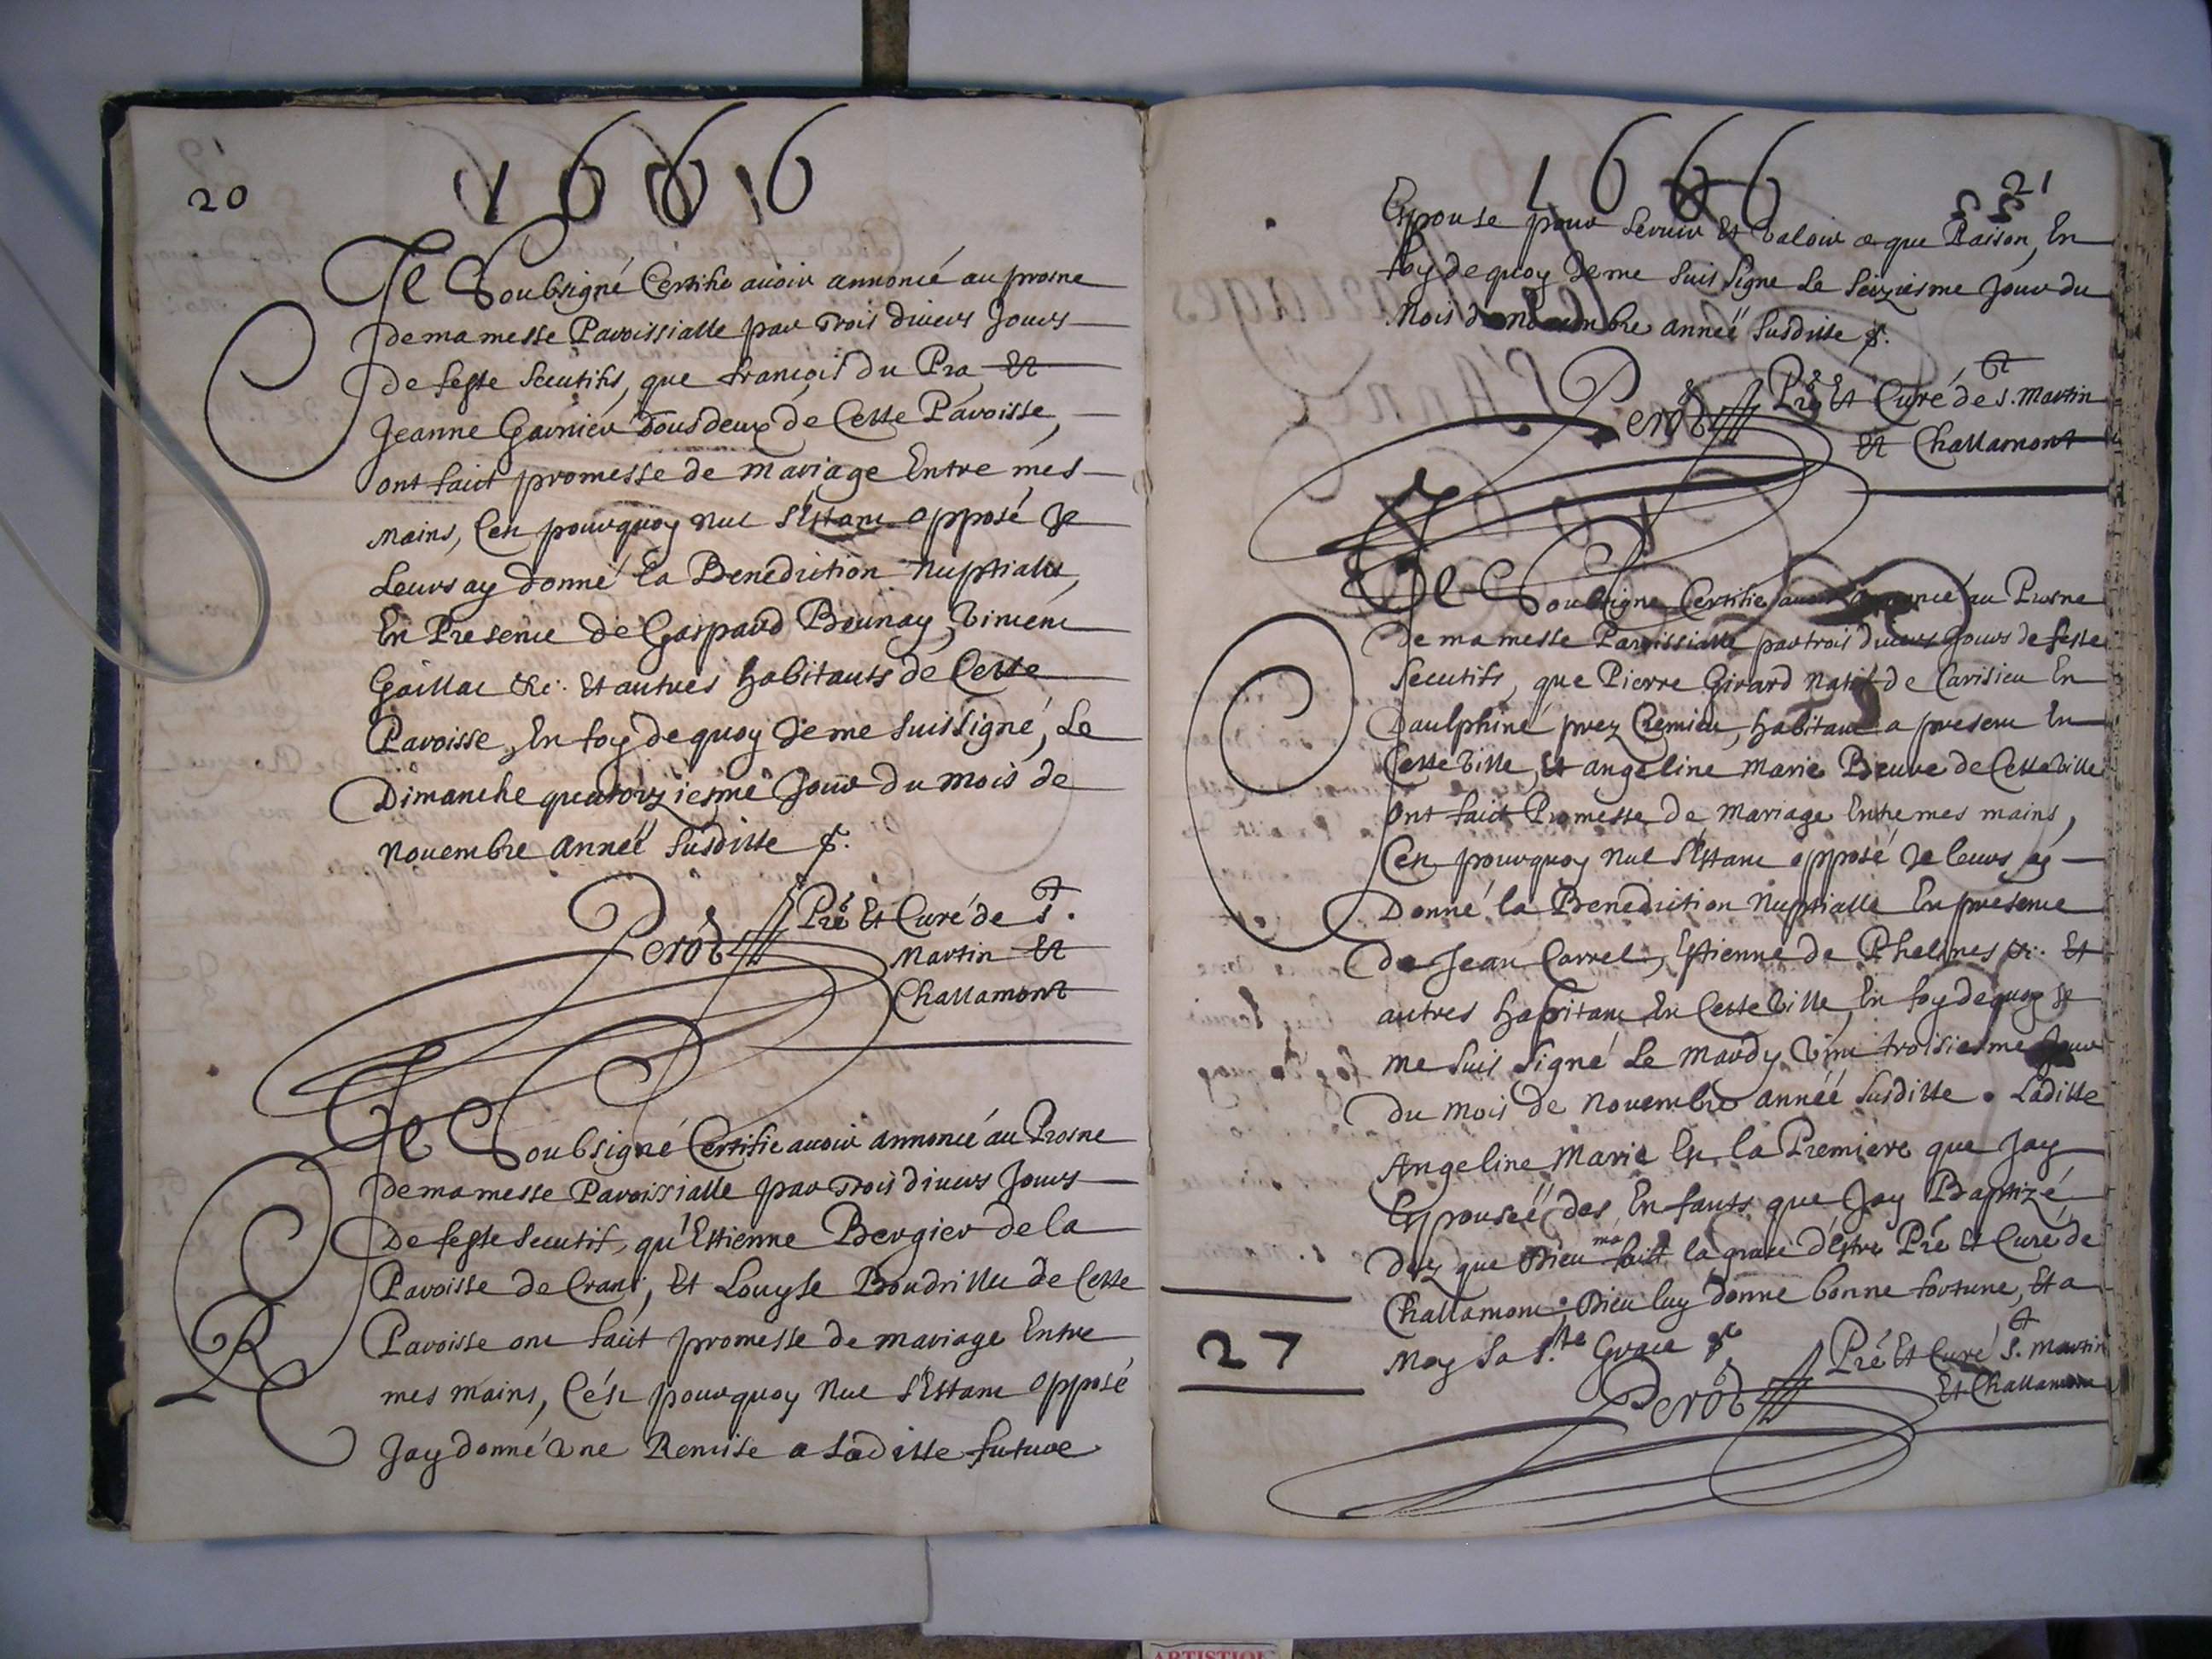 20
1666
Je Soubsigné Certifie auoir annoncé au prosne
de ma messe Paroissialle par Trois diuers Jours
de feste secutifs, que françois du Pra Et
Jeanne Garnier Tous deux de Cette Paroisse,
ont faict promesse de mariage Entre mes
mains, C'est pourquoy nul s'Estant opposé Je
Leurs ay donné la Benediction nuptialle,
En Presence de Gaspard Beunay, Vincent
Gaillac &c. Et autres habitants de Cette
Paroisse, En foy de quoy Je me suis signé, Le
Dimanche quatorziesme Jour du mois de
nouembre Anneé susditte
Perôd Pre Et Curé de St.
Martin Et
Challamont
Je Soubsigné Certifie auoir annoncé au Prosne
de ma messe Paroissialle par Trois diuers Jours
De feste secutif, qu'Estienne Bergier de la
Paroisse de Crans, Et Louyse Boudrillu de Cette
R
Paroisse ont faict promesse de mariage Entre
mes mains, C'ést pourquoy nul s'Estant opposé
Jay donné Vne Remise a Laditte future
1666
21
Espouse pour seruir Et Valoir ce que Raison, En
foy de quoy Je me suis signé Le seiziesme Jour du
Mois de nouembre anneé susditte
Perôd Pre Et Curé de St. Martin
Et Challamont
Je Soubsigné Certifie auoir annoncé au Prosne
de ma messe Paroissialle par trois diuers Jours de feste
secutifs, que Pierre Girard natif de Carisieu En
Daulphiné prez Cremieu, habitant a present En
Cette Ville, Et angeline Marie Beuve de Cette Ville
ont faict Promesse de Mariage Entre mes mains,
C'est pourquoy nul s'Estant opposé Je leurs ay
Donné la Benediction Nuptialle En presence
de Jean Carrel, Estienne de Phelines &c. Et
autres habitant En Cette Ville, En foy de quoy Je
me suis signé Le Mardy Vint troisiesme Jour
du Mois de Nouembre annéé susditte. Laditte
Angeline Marie Est la Premiere que Jay
Espouseé des Enfants que Jay Baptizé,
dez que Dieu ma faict la grace d'Estre Pré Et Curé de
Challamont; Dieu luy donne bonne fortune, Et a
27
Moy sa Ste Grace
Perôd Pré Et Curé St. Martin
Et Challamont
ARTISTIQUE